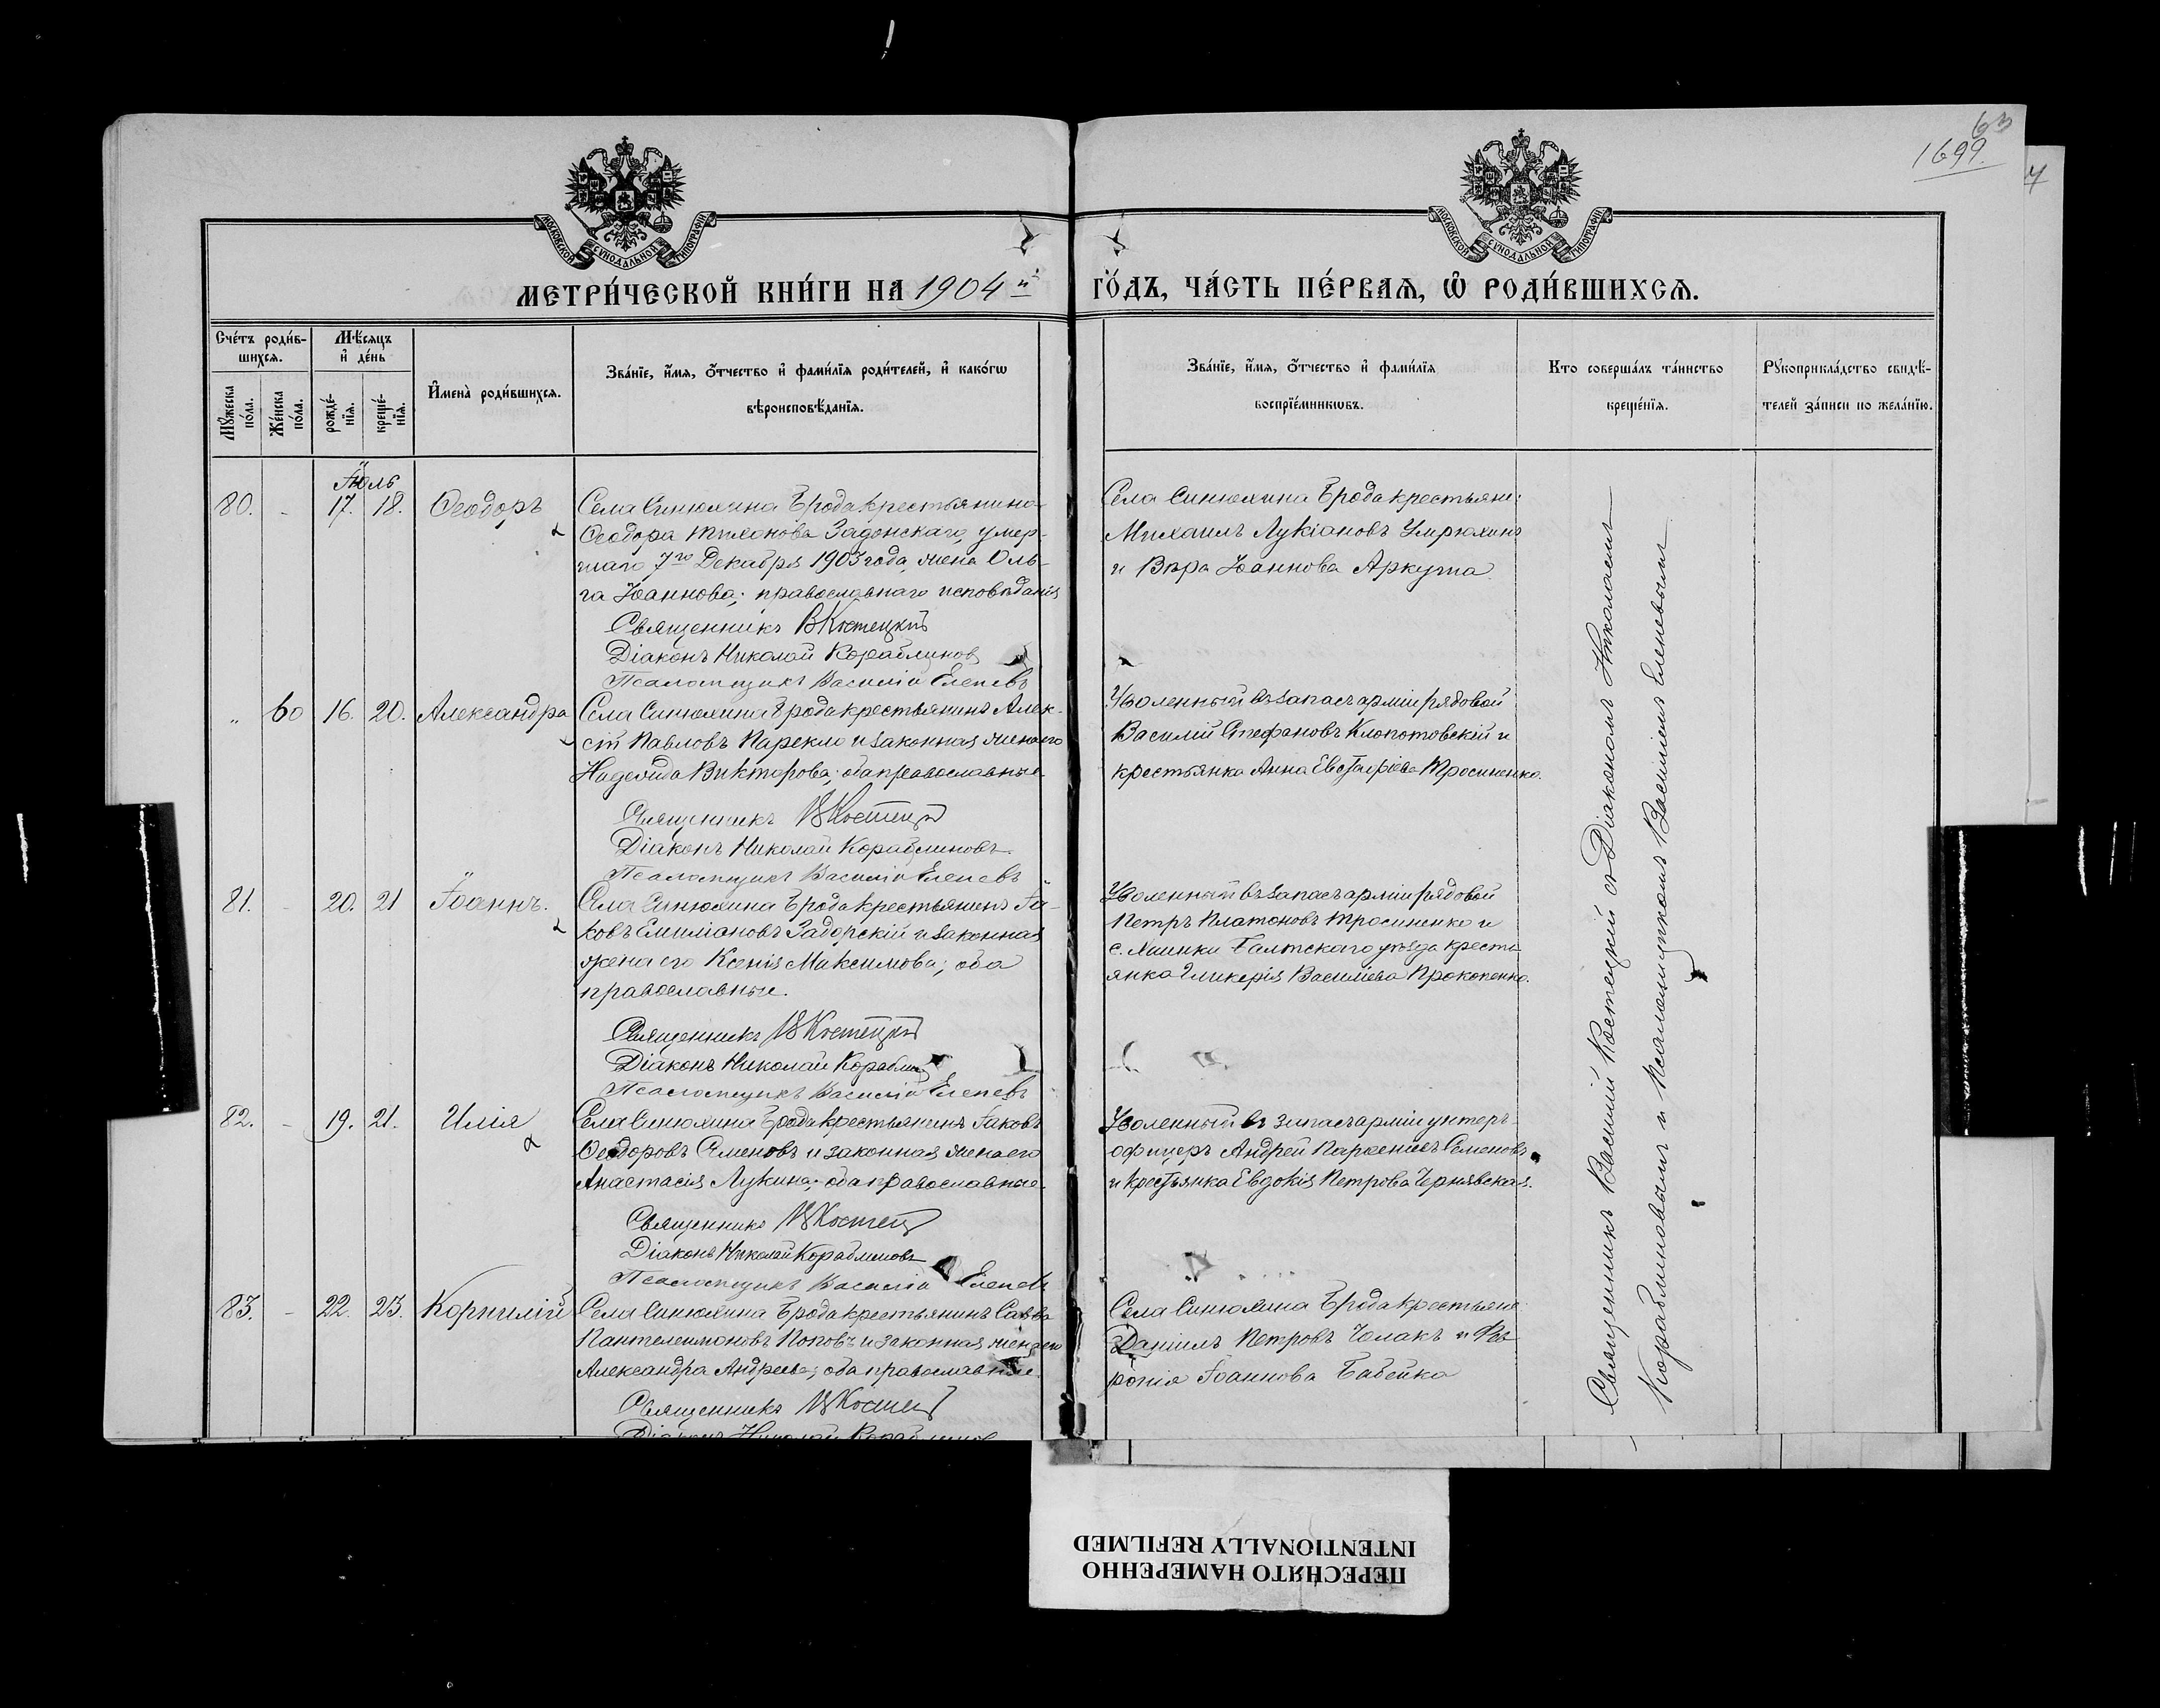 63
1699.
МОСКОВСКОЙ СѴНОДАЛЬНОЙ ТИПОГРАФІИ
МОСКОВСКОЙ СѴНОДАЛЬНОЙ ТИПОГРАФІИ
МЕТРИ́ЧЕСКОЙ КНИ́ГИ НА 1904й ГО́ДЪ, ЧА́СТЬ ПЕ́РВАѦ, Ѡ҆ РОДИ́ВШИХСѦ.
Сче́тъ роди́в-
шихсѧ.
Мꙋ́жеска по́ла.
Же́нска по́ла.
Мѣ́сѧцъ
и҆ де́нь
рожде́-
нїѧ.
креще́-
нїѧ.
И҆мена̀ роди́вшихсѧ.
Зва́нїе, и҆́мѧ, ѻ҆́тчество и҆ фами́лїѧ роди́телей, и҆ како́гѡ
вѣроисповѣ́данїѧ.
Зва́нїе, и҆́мѧ, ѻ҆́тчество и҆ фами́лїѧ
воспрїе́мникѡвъ.
Кто соверша́лъ та́инство
креще́нїѧ.
Рꙋкоприкла́дство свидѣ́-
телей за́писи по жела́нїю.
Іюль
80. - 17. 18. Ѳеодоръ
Села Синюхина Брода крестьянина
Ѳеодора Тихонова Задонскаго, умер-
шаго 7го Декабря 1903 года, жена Оль-
га Іоаннова; православнаго исповѣданія
Священникъ В Костецкій
Діаконъ Николай Кораблиновъ
Псаломщикъ Василій Еленевъ
Села Синюхина Брода крестьяне:
Михаилъ Лукіановъ
и Вѣра Іоаннова
„ 60 16. 20. Александра
Села Синюхина Брода крестьянинъ Алек-
сѣй Павловъ и законная жена его
Надежда Викторова; оба православные
Священникъ В Костецкій
Діаконъ Николай Кораблиновъ
Псаломщикъ Василій Еленевъ
Уволенный въ запасъ арміи рядовой
Василій Стефановъ Клопотовскій и
крестьянка Анна Евстафіева Тросиненко.
81. - 20. 21 Іоаннъ.
Села Синюхина Брода крестьянинъ Іа-
ковъ Емиліановъ Задорскій и законная
жена его Ксенія Максимова; оба
православные.
Священникъ В Костецкій
Діаконъ Николай Кораблиновъ
Псаломщикъ Василій Еленевъ
Уволенный въ запасъ арміи рядовой
Петръ Платоновъ Тросиненко и
с. Балтскаго уѣзда кресть-
янка Гликерія Василіева Прокопенко.
82. - 19. 21. Илія
Села Синюхина Брода крестьянинъ Іаковъ
Ѳеодоровъ Семеновъ и законная жена его
Анастасія Лукина; оба православные.
Священникъ В Костецкій
Діаконъ Николай Кораблиновъ
Псаломщикъ Василій Еленевъ
Уволенный въ запасъ арміи унтеръ-
офицеръ Андрей Семеновъ
и крестьянка Евдокія Петрова Чернявская.
83. - 22. 23. Корнилій
Села Синюхина Брода крестьянинъ Савва
Пантелеимоновъ Поповъ и законная жена его
Александра Андреева; оба православные.
Священникъ В Костецкій
Діаконъ Николай Кораблиновъ
Села Синюхина Брода крестьяне:
Даніилъ Петровъ Чолакъ и Фев-
ронія Іоаннова Бабейко
Священникъ Василій Костецкій съ Діакономъ Николаемъ
Кораблиновымъ и Псаломщикомъ Василіемъ Еленевымъ
ПЕРЕСНЯТО НАМЕРЕННО
INTENTIONALLY REFILMED